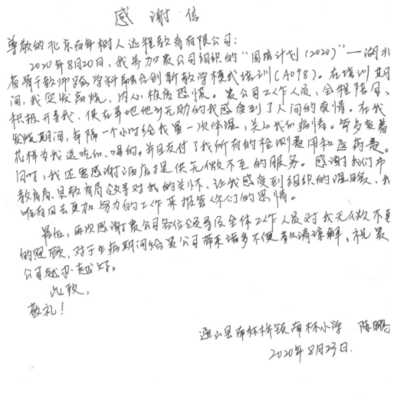 感谢信
尊敬的北京百年树人远程教育有限公司:
2020年8月20日,我参加贵公司组织的"国培计划(2020)"—湖北
省骨干教师跨学科融合创新教学模式培训(A098)。在培训期
间,我突发高烧,内心极度恐慌。贵公司工作人员,全程陪同、
积极开导我,使在武汉无助的我感受到了人间的友情。在我
发烧期间,每隔一小时给我量一次体温,关心我的病情。变着
花样为我送吃的、喝的,并且支付了我所有的检测费用和医药费。
同时,我还要感谢酒店提供无微不至的服务。感谢我们市
教育局、县教育局领导对我的关怀,让我感受到组织的温暖,我
唯有日后更加努力的工作来报答你们的恩情。
最后,再次感谢贵公司各位领导及全体工作人员对我无微不至
的照顾,对于生病期间给贵公司带来诸多不便敬请谅解。祝贵
公司越办越好。
此致,
敬礼!
通山县 小学 陈鹏
2020年8月23日.